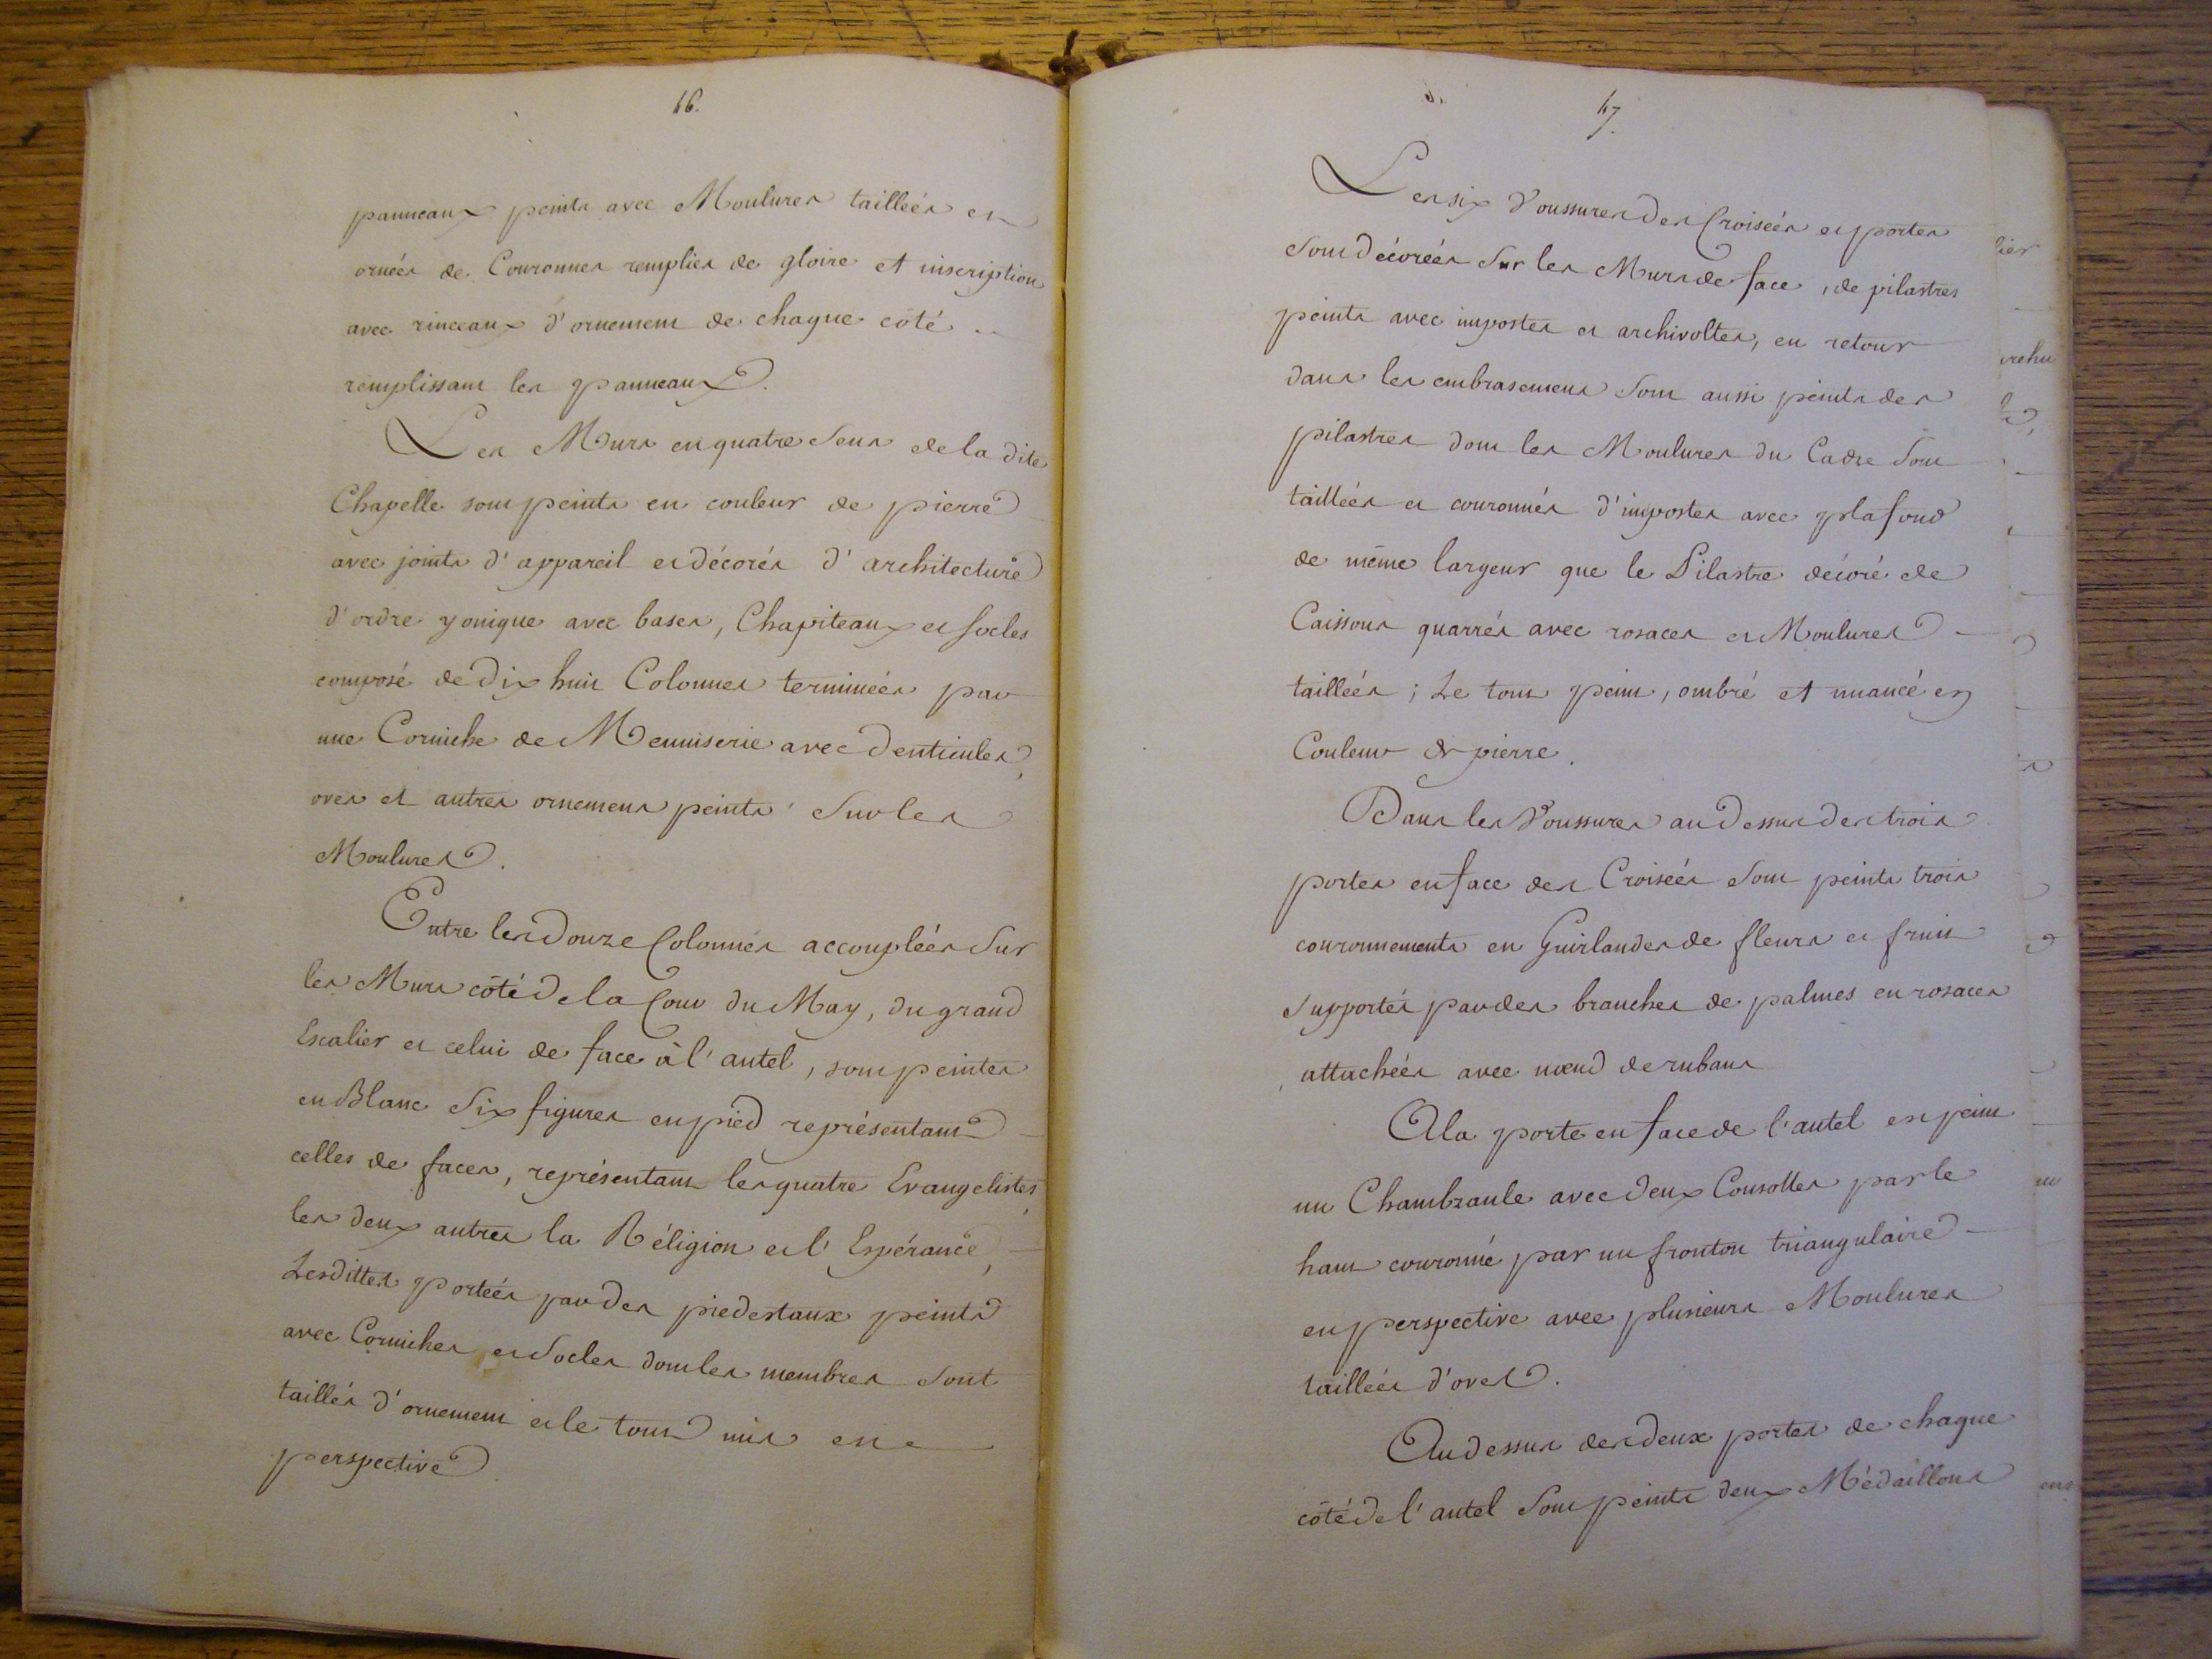 16.
panneaux peints avec Moulures tailleés et
ornées de Couronnes remplies de gloire et inscription
avec rinceaux d'ornement de chaque côté
remplissant les panneaux.
Les Murs en quatre Sens de la dite
Chapelle sont peints en couleur de pierre
avec joints d'appareil et décorés d'architecture
d'ordre yonique avec bases, Chapiteaux et socles
composé de dix huit Colonnes terminées par
une Corniche de Menuiserie avec denticules,
oves et autres ornemens peints Sur les
Moulures.
Entre les douze Colonnes accouplées Sur
les Murs côté de la Cour du May, du grand
Escalier et celui de face à l'autel, sont peintes
en Blanc Six figures en pied représentant
celles de faces, représentant les quatre Evangelistes,
les deux autres la Réligion et l'Espérance,
Lesdittes portées par des piedestaux peints
avec Corniches et Socles dont les membres Sont
taillés d'ornement et le tout mis en
perspective
17.
Les six Voussures des Croisées et portes
Sont décorées Sur les Murs de face, de pilastres
peints avec impostes et archivoltes, en retour
dans les embrasemens Sont aussi peints des
pilastres dont les Moulures du Cadre Sont
taillées et couronnés d'impostes avec plafond
de même largeur que le Pilastre décoré de
Caissons quarrés avec rosaces et Moulures
taillées; Le tout peint, ombré et nuancé en
Couleur de pierre.
Dans les Voussures au dessus des trois
portes en face des Croisées Sont peints trois
couronnements en Guirlandes de fleurs et fruit
Supportés par des branches de palmes en rosaces
attachées avec nœud de rubans
A la porte en face de l'autel est peint
un Chambranle avec deux Consolles par le
haut couronné par un fronton triangulaire
en perspective avec plusieurs Moulures
taillées d'oves.
Au dessus des deux portes de chaque
côté de l'autel Sont peints deux Médaillons